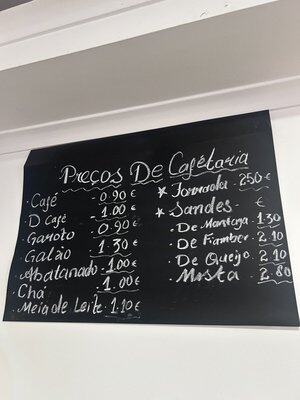 Preços De Cafétaria
Café - 0.90 €
D Café - 1.00 €
Garoto - 0.90 €
Galão - 1.30 €
Abatanado - 1.00 €
Chá - 1.00 €
Meia de Leite - 1.10 €
Torrada - 2.50 €
Sandes - €
- De Manteiga - 1.30
- De Fiambre - 2.10
- De Queijo - 2.10
Mista - 2.80